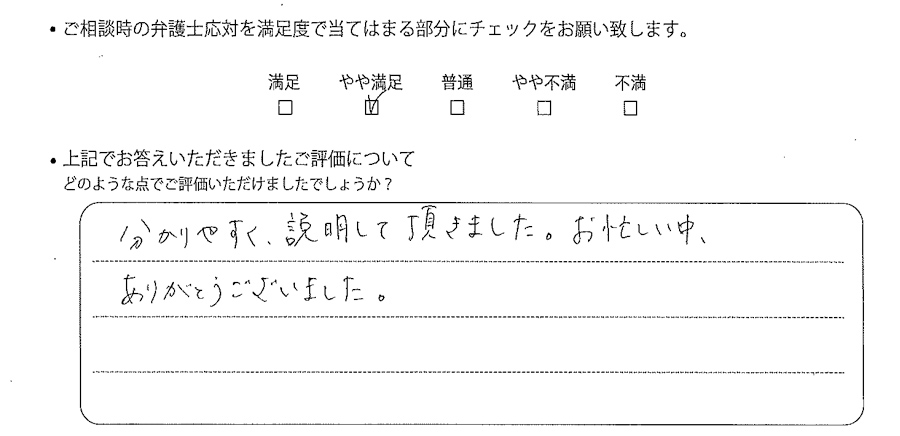 • ご相談時の弁護士応対を満足度で当てはまる部分にチェックをお願い致します。
満足 やや満足 普通 やや不満 不満
□ ☑ □ □ □
• 上記でお答えいただきましたご評価について
どのような点でご評価いただけましたでしょうか？
分かりやすく、説明して頂きました。お忙しい中、
ありがとうございました。